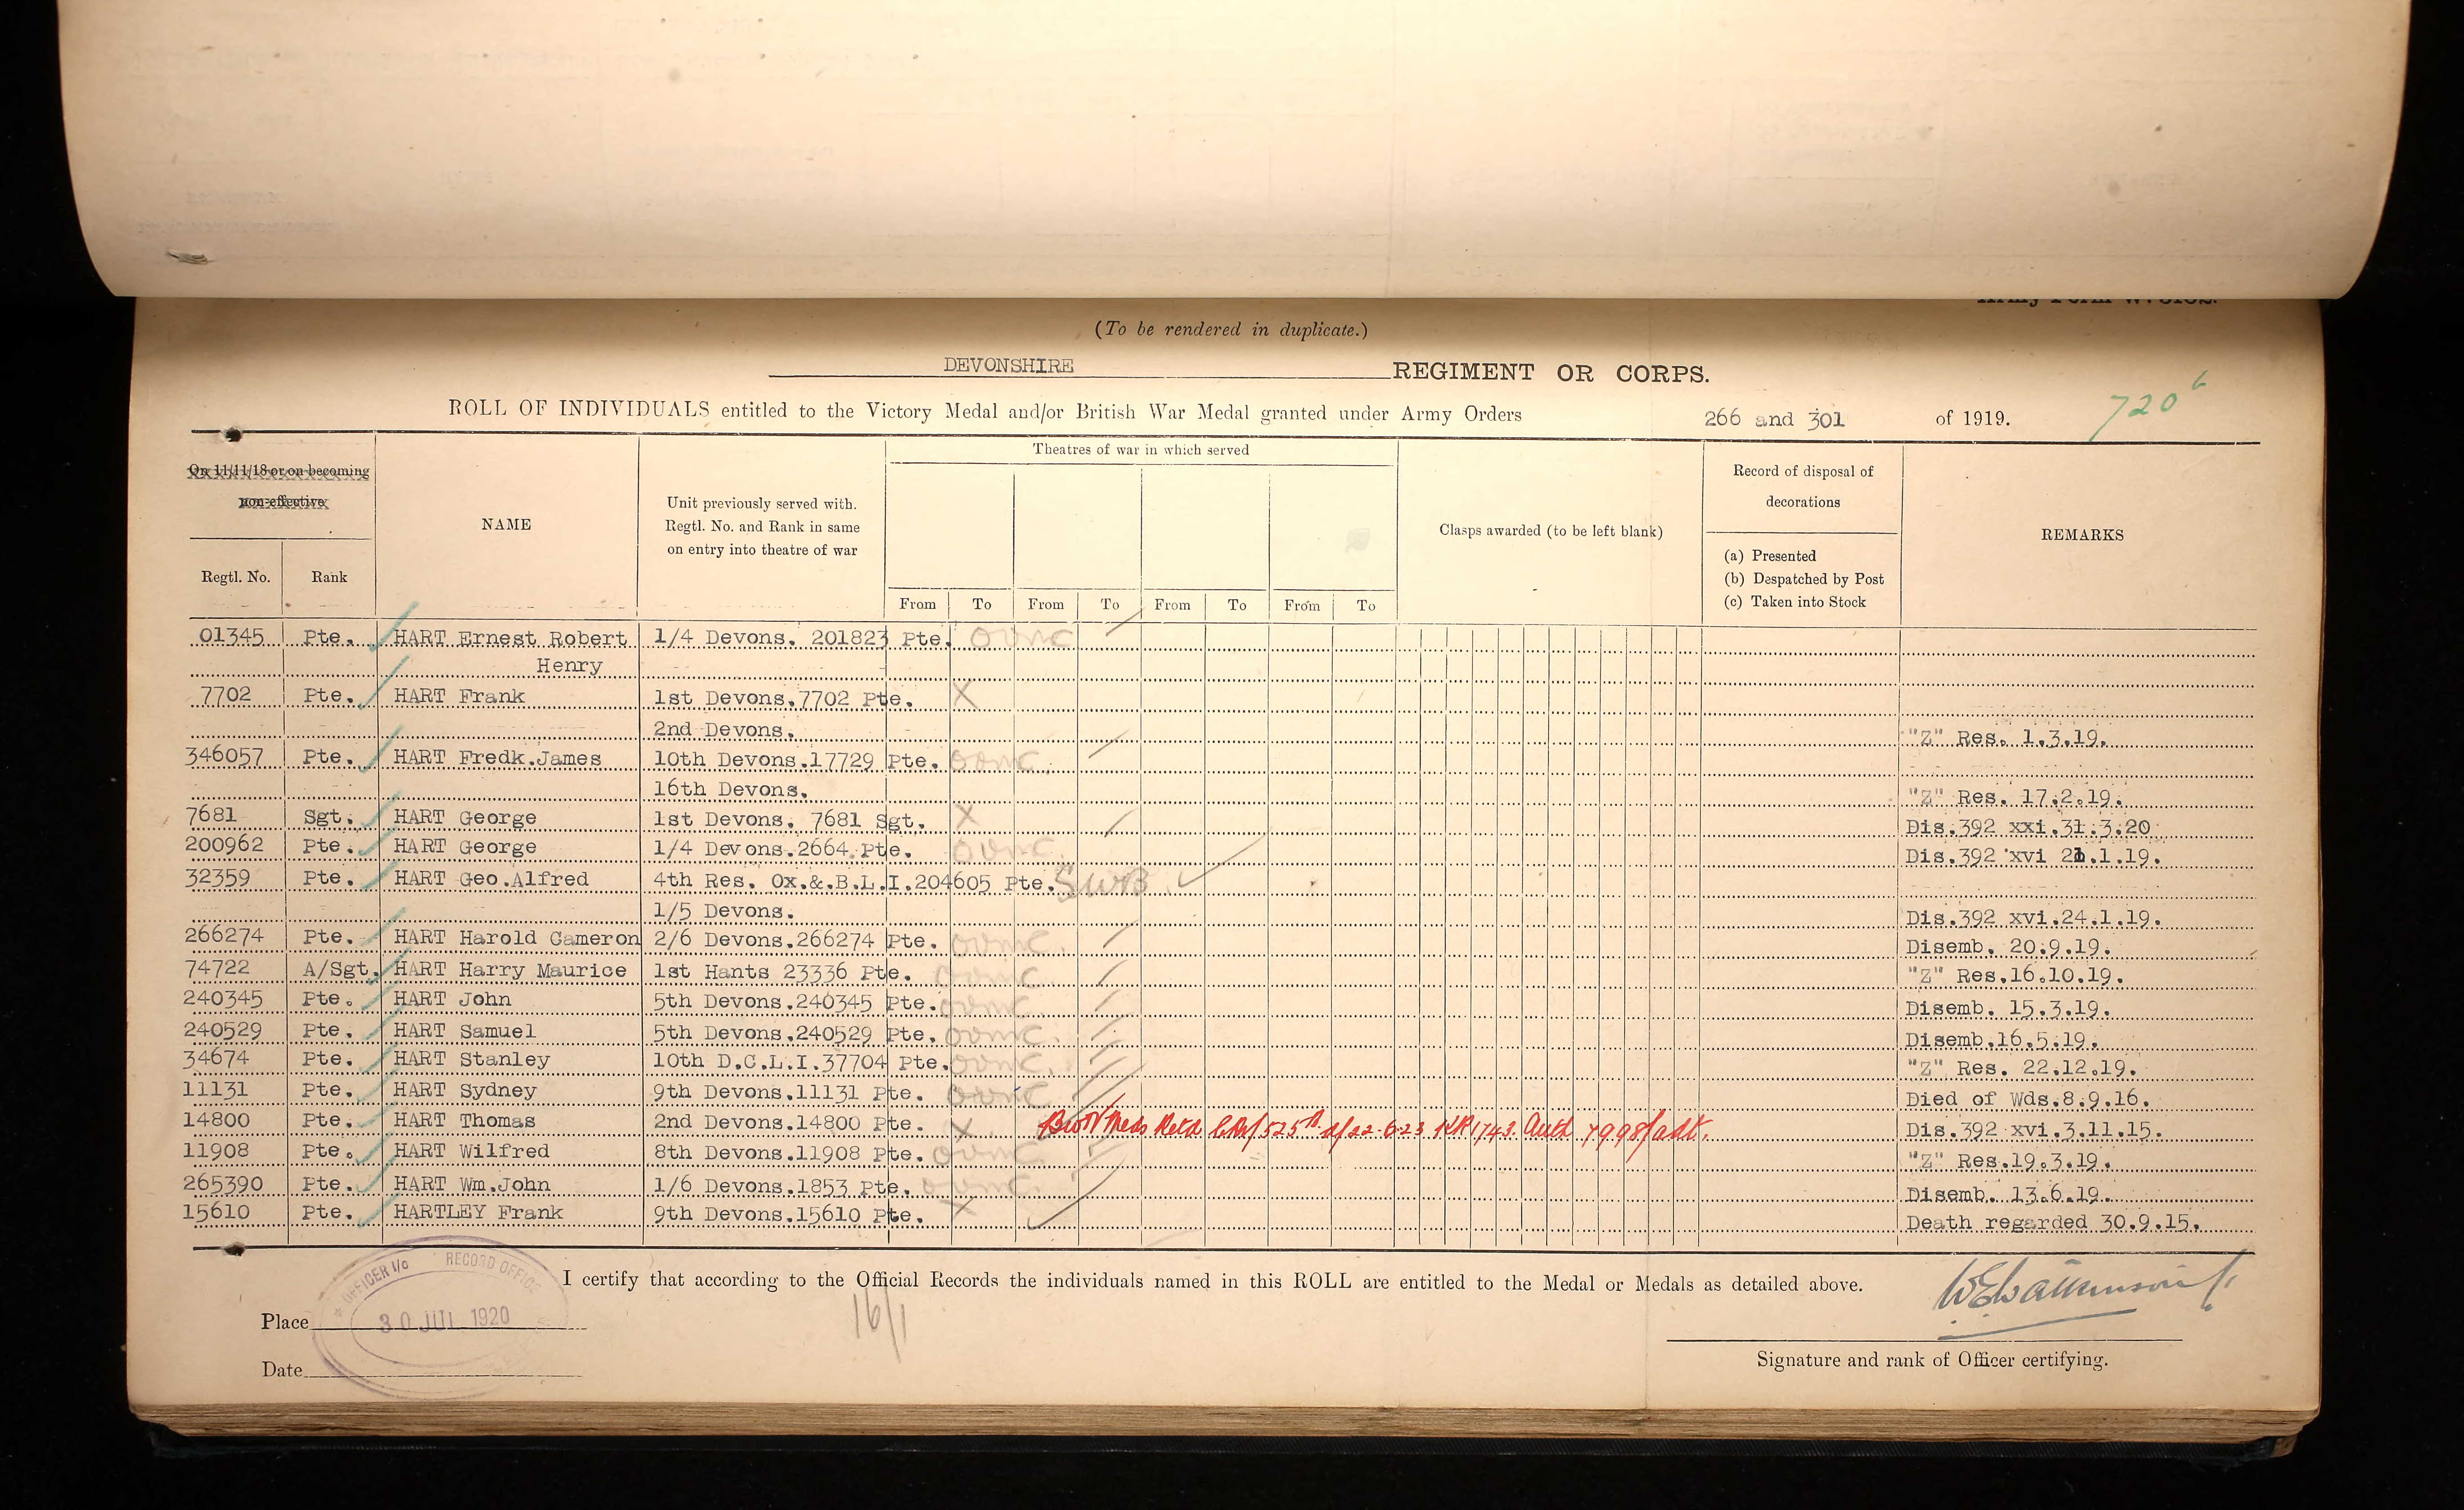 (To be rendered in duplicate.)
DEVONSHIRE REGIMENT OR CORPS.
720 6
ROLL OF INDIVIDUALS entitled to the Victory Medal and/or British War Medal granted under Army Orders 266 and 301 of 1919.
On 11/11/18 or on becoming
non-effective
Regtl. No. Rank
NAME
Unit previously served with.
Regtl. No. and Rank in same
on entry into theatre of war
Theatres of war in which served
From To From To From To From To
Clasps awarded (to be left blank)
Record of disposal of
decorations
(a) Presented
(b) Despatched by Post
(c) Taken into Stock
REMARKS
01345 Pte. HART Ernest Robert 1/4 Devons. 201823 Pte.
Henry
7702 Pte. HART Frank 1st Devons.7702 Pte. X
2nd Devons. "Z" Res. 1.3.19.
346057 Pte. HART Fredk.James 10th Devons.17729 Pte.
16th Devons. "Z" Res. 17.2.19.
7681 Sgt. HART George 1st Devons. 7681 Sgt. X Dis.392 xxi.31.3.20
200962 Pte. HART George 1/4 Devons.2664 Pte. Dis.392 xvi 21.1.19.
32359 Pte. HART Geo.Alfred 4th Res. Ox.&.B.L.I.204605 Pte. SWB
1/5 Devons. Dis.392 xvi.24.1.19.
266274 Pte. HART Harold Cameron 2/6 Devons.266274 Pte. Disemb. 20.9.19.
74722 A/Sgt. HART Harry Maurice 1st Hants 23336 Pte. "Z" Res.16.10.19.
240345 Pte. HART John 5th Devons.240345 Pte. Disemb. 15.3.19.
240529 Pte. HART Samuel 5th Devons.240529 Pte. Disemb.16.5.19.
34674 Pte. HART Stanley 10th D.C.L.I.37704 Pte. "Z" Res. 22.12.19.
11131 Pte. HART Sydney 9th Devons.11131 Pte. Died of Wds.8.9.16.
14800 Pte. HART Thomas 2nd Devons.14800 Pte. X. Meds Retd 525 22.6.23 1743. Auth 7998/adt. Dis.392 xvi.3.11.15.
11908 Pte. HART Wilfred 8th Devons.11908 Pte. "Z" Res.19.3.19.
265390 Pte. HART Wm.John 1/6 Devons.1853 Pte. Disemb. 13.6.19.
15610 Pte. HARTLEY Frank 9th Devons.15610 Pte. X Death regarded 30.9.15.
I certify that according to the Official Records the individuals named in this ROLL are entitled to the Medal or Medals as detailed above.
OFFICER I/c RECORD OFFICE
30 JUL 1920
16/1
Place
Date
Signature and rank of Officer certifying.